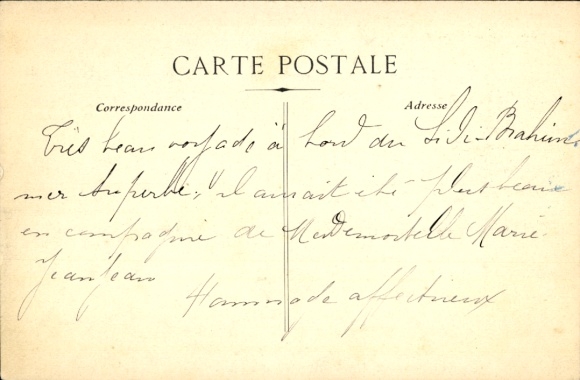 CARTE POSTALE
Correspondance
Adresse
Très beau voyage à bord du Sidi-Brahim.
mer superbe, il aurait été plus beau
en compagnie de Mademoiselle Marie
Jeanjean
Hommage affectueux